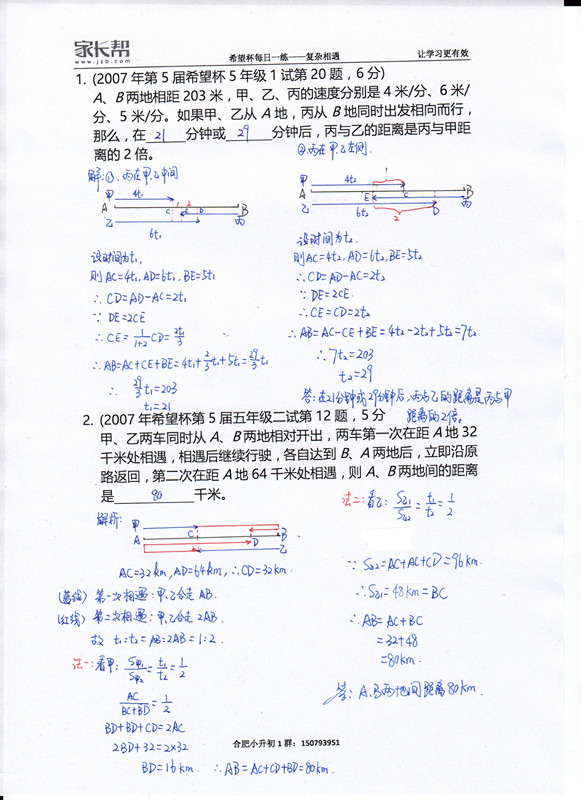 家长帮
www.jzb.com
希望杯每日一练——复杂相遇
让学习更有效
1. (2007 年第 5 届希望杯 5 年级 1 试第 20 题，6 分)
A、B 两地相距 203 米，甲、乙、丙的速度分别是 4 米/分、6 米/
分、5 米/分。如果甲、乙从 A 地，丙从 B 地同时出发相向而行，
那么，在 21 分钟或 29 分钟后，丙与乙的距离是丙与甲距
离的 2 倍。
解: ①. 丙在甲、乙中间
甲 4t₁
A C E D B
乙 6t₁ 丙
1 2
设时间为t₁
则 AC=4t₁, AD=6t₁, BE=5t₁
∴ CD=AD-AC=2t₁
∵ DE=2CE
∴ CE= 1/(1+2) CD= 2t₁/3
∴ AB=AC+CE+BE=4t₁+2/3t₁+5t₁=29/3t₁
∴ 29/3t₁=203
t₁=21
②. 丙在甲、乙左侧.
甲 4t₂ 1
A E C D B
乙 6t₂ 2 丙
设时间为t₂
则 AC=4t₂, AD=6t₂, BE=5t₂
∴ CD=AD-AC=2t₂
∵ DE=2CE.
∴ CE=CD=2t₂
∴ AB=AC-CE+BE=4t₂-2t₂+5t₂=7t₂
∴ 7t₂=203
t₂=29
答: 在21分钟或29分钟后, 丙与乙的距离是丙与甲
距离的2倍.
2. (2007 年希望杯第 5 届五年级二试第 12 题，5 分
甲、乙两车同时从 A、B 两地相对开出，两车第一次在距 A 地 32
千米处相遇，相遇后继续行驶，各自达到 B、A 两地后，立即沿原
路返回，第二次在距 A 地 64 千米处相遇，则 A、B 两地间的距离
是 80 千米。
解析:
甲
A C D B
乙
AC=32km, AD=64km, ∴CD=32km.
(蓝线) 第一次相遇: 甲、乙合走 AB.
(红线) 第二次相遇: 甲、乙合走 2AB.
故 t₁:t₂=AB:2AB=1:2.
法一: 看甲: S甲₁/S甲₂ = t₁/t₂ = 1/2
AC/(BC+BD) = 1/2
BD+BD+CD=2AC
2BD+32=2×32
BD=16km. ∴ AB=AC+CD+BD=80km.
法二: 看乙: S乙₁/S乙₂ = t₁/t₂ = 1/2
∵ S乙₂=AC+AC+CD=96km.
∴ S乙₁=48km=BC
∴ AB=AC+BC
=32+48
=80km.
答: A、B两地间距离80km.
合肥小升初 1 群：150793951